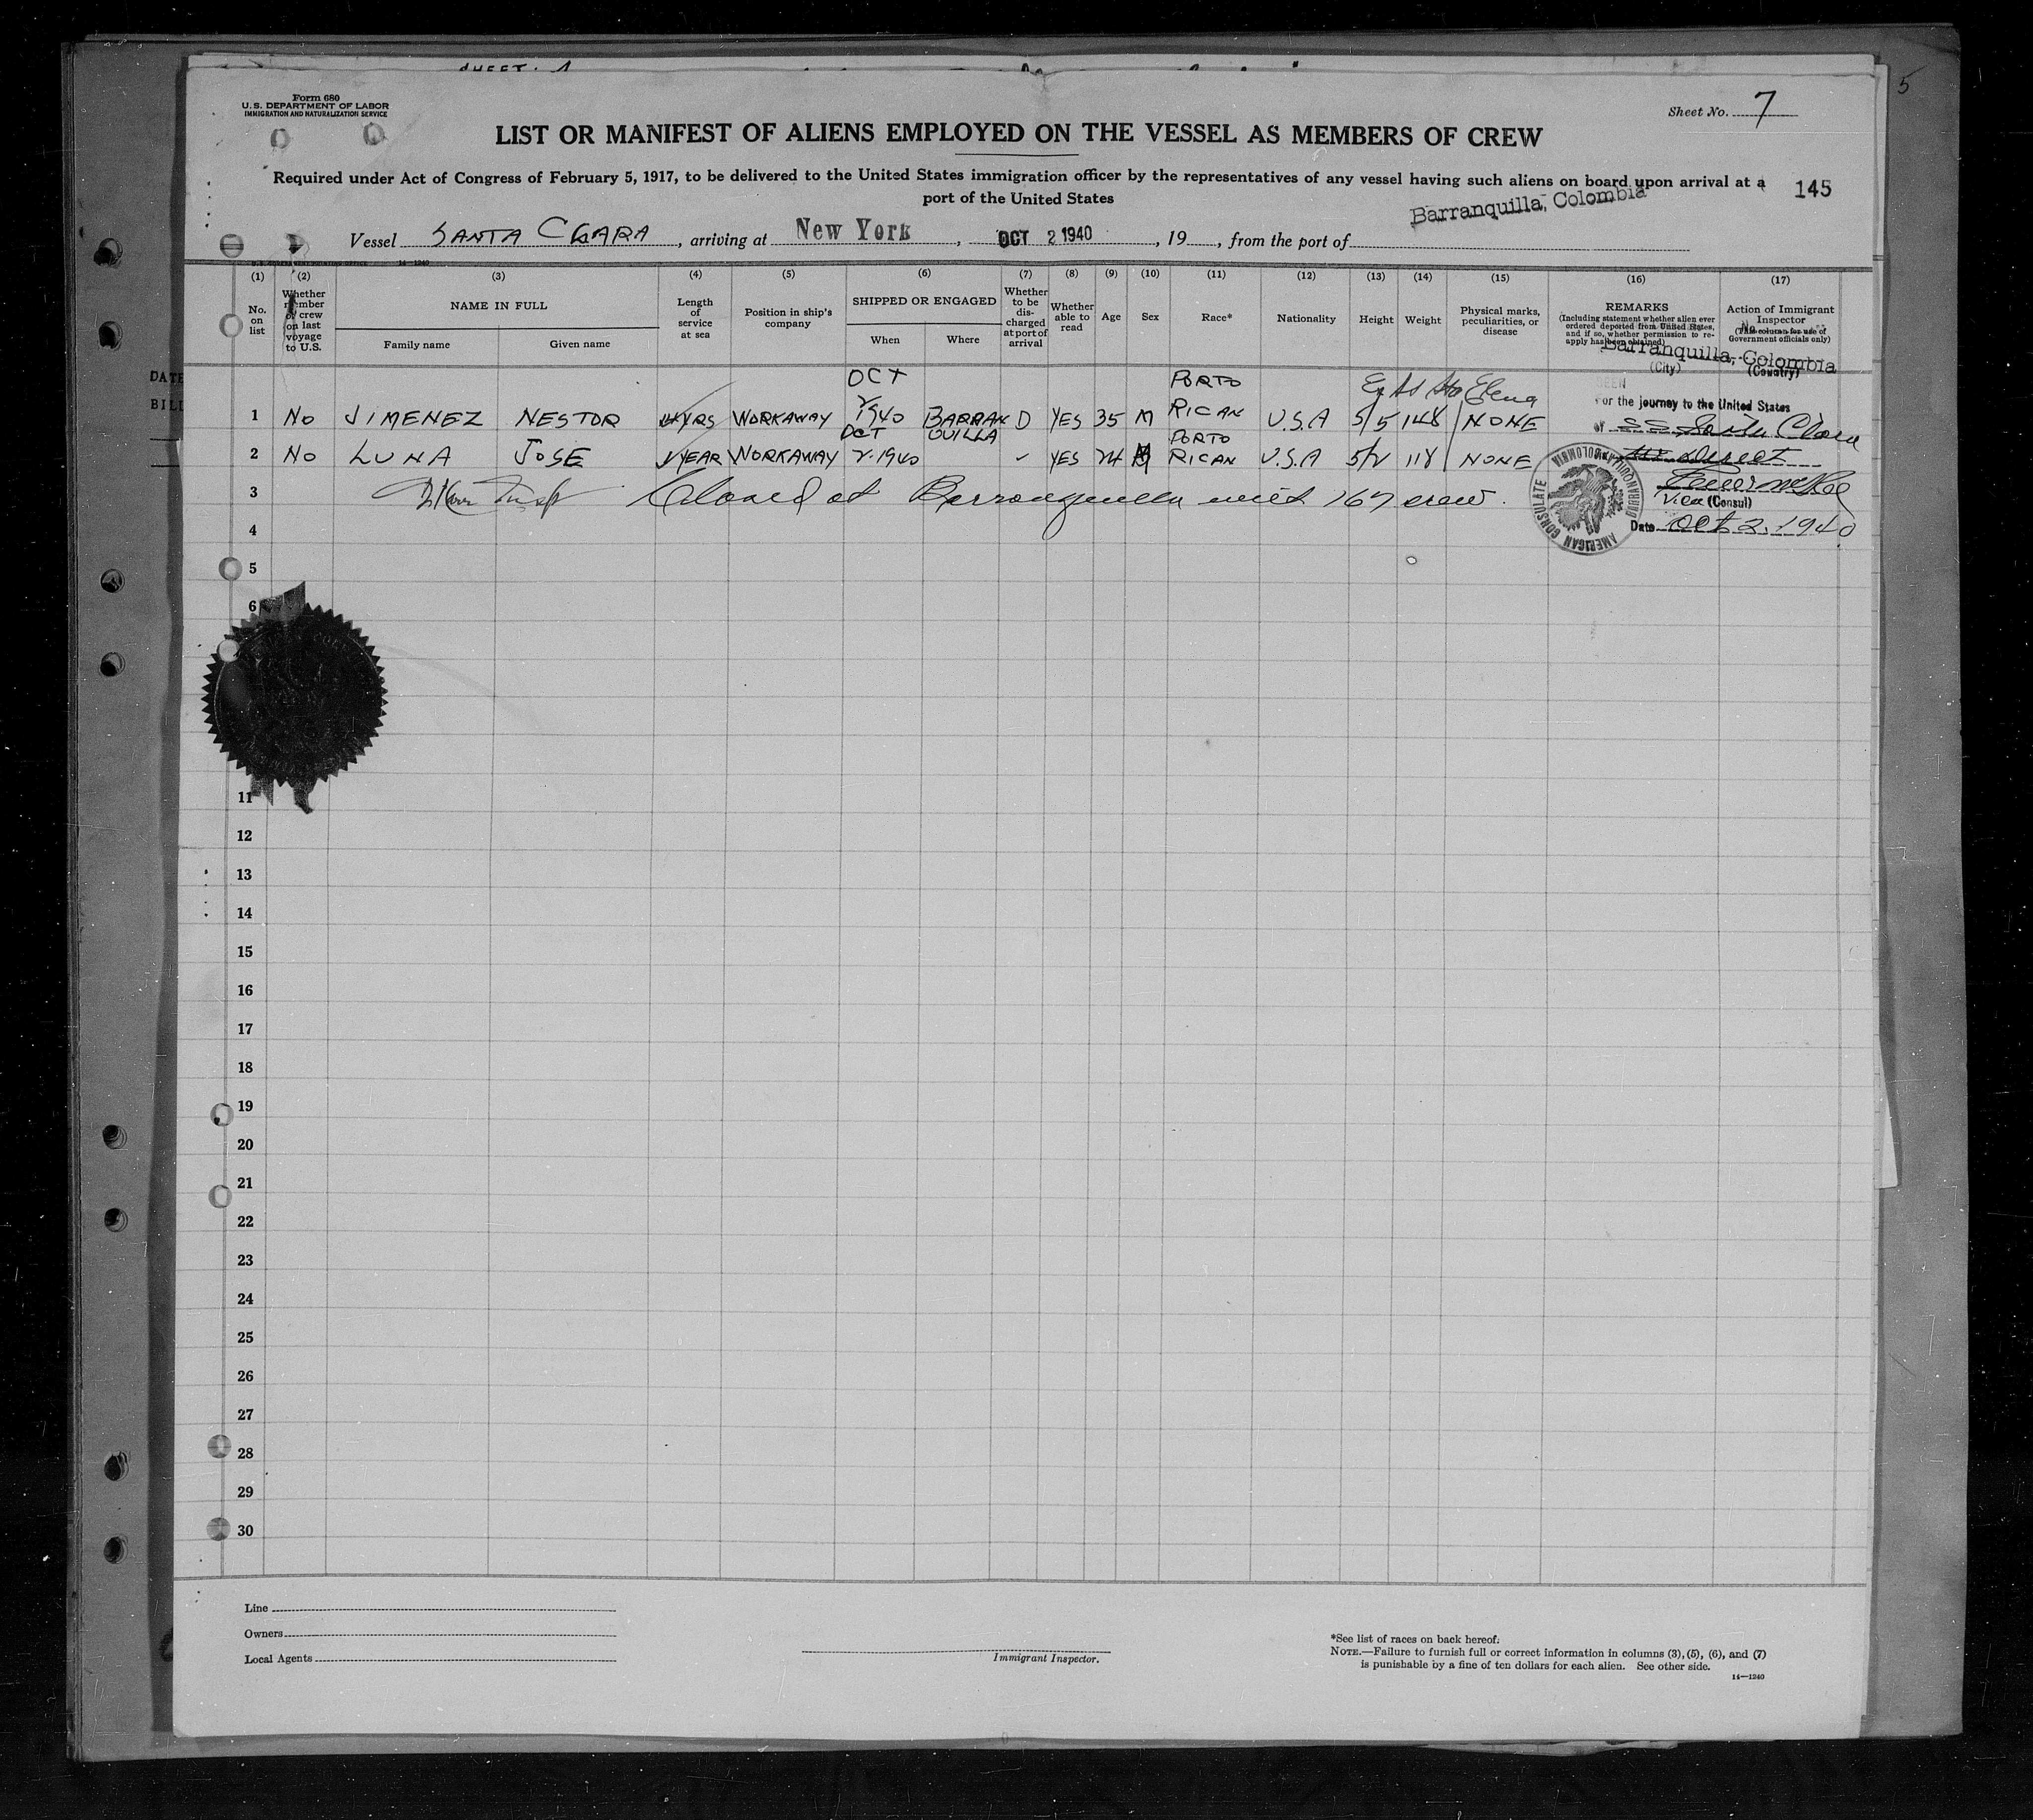 SHEET. 1
5
Form 680
U. S. DEPARTMENT OF LABOR
IMMIGRATION AND NATURALIZATION SERVICE
Sheet No. 7
LIST OR MANIFEST OF ALIENS EMPLOYED ON THE VESSEL AS MEMBERS OF CREW
Required under Act of Congress of February 5, 1917, to be delivered to the United States immigration officer by the representatives of any vessel having such aliens on board upon arrival at a
port of the United States
145
Vessel SANTA CLARA, arriving at New York, OCT 2 1940, 19, from the port of Barranquilla, Colombia
14—1240
(1) (2) (3) (4) (5) (6) (7) (8) (9) (10) (11) (12) (13) (14) (15) (16) (17)
No. on list
Whether member of crew on last voyage to U.S.
NAME IN FULL
Family name Given name
Length of service at sea
Position in ship's company
SHIPPED OR ENGAGED
When Where
Whether to be discharged at port of arrival
Whether able to read
Age
Sex
Race*
Nationality
Height
Weight
Physical marks, peculiarities, or disease
REMARKS
(Including statement whether alien ever ordered deported from United States, and if so, whether permission to reapply has been obtained)
Action of Immigrant Inspector
(This column for use of Government officials only)
No.
Barranquilla, Colombia
(City) (Country)
SEEN
For the journey to the United States
DATE
BILL
1 No JIMENEZ NESTOR YRS WORKAWAY OCT 2 1940 BARRAN QUILLA D YES 35 M PORTO RICAN U.S.A 5/5 148 NONE
of SS Santa Clara
2 No LUNA JOSE 1 YEAR WORKAWAY OCT 2. 1940 - YES 24 M PORTO RICAN U.S.A 5/2 118 NONE
direct
3 Closed at Barranquilla with 167 crew.
Vice (Consul)
AMERICAN CONSULATE BARRANQUILLA, COLOMBIA
Date Oct. 2. 1940
4
5
6
11
12
13
14
15
16
17
18
19
20
21
22
23
24
25
26
27
28
29
30
Line
Owners
Local Agents
Immigrant Inspector.
*See list of races on back hereof.
NOTE.—Failure to furnish full or correct information in columns (3), (5), (6), and (7)
is punishable by a fine of ten dollars for each alien. See other side.
14—1240